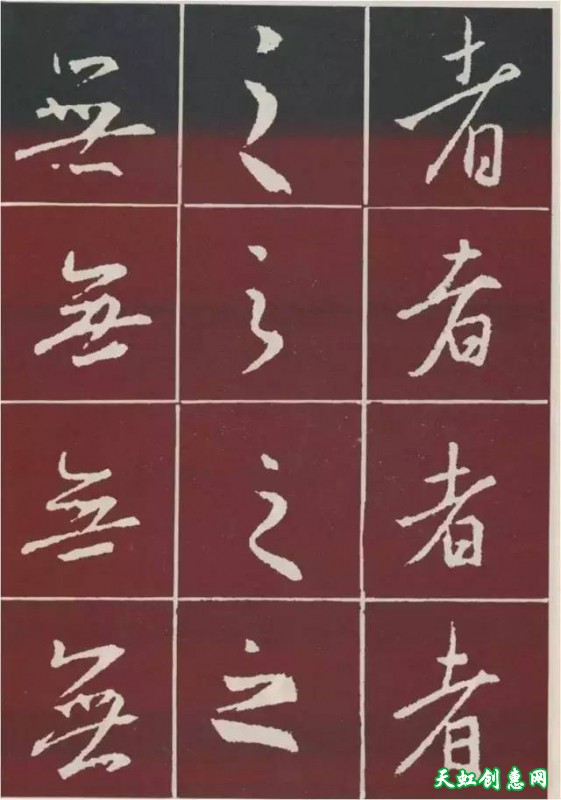 者
者
者
者
之
之
之
之
無
無
無
無
天虹创惠网